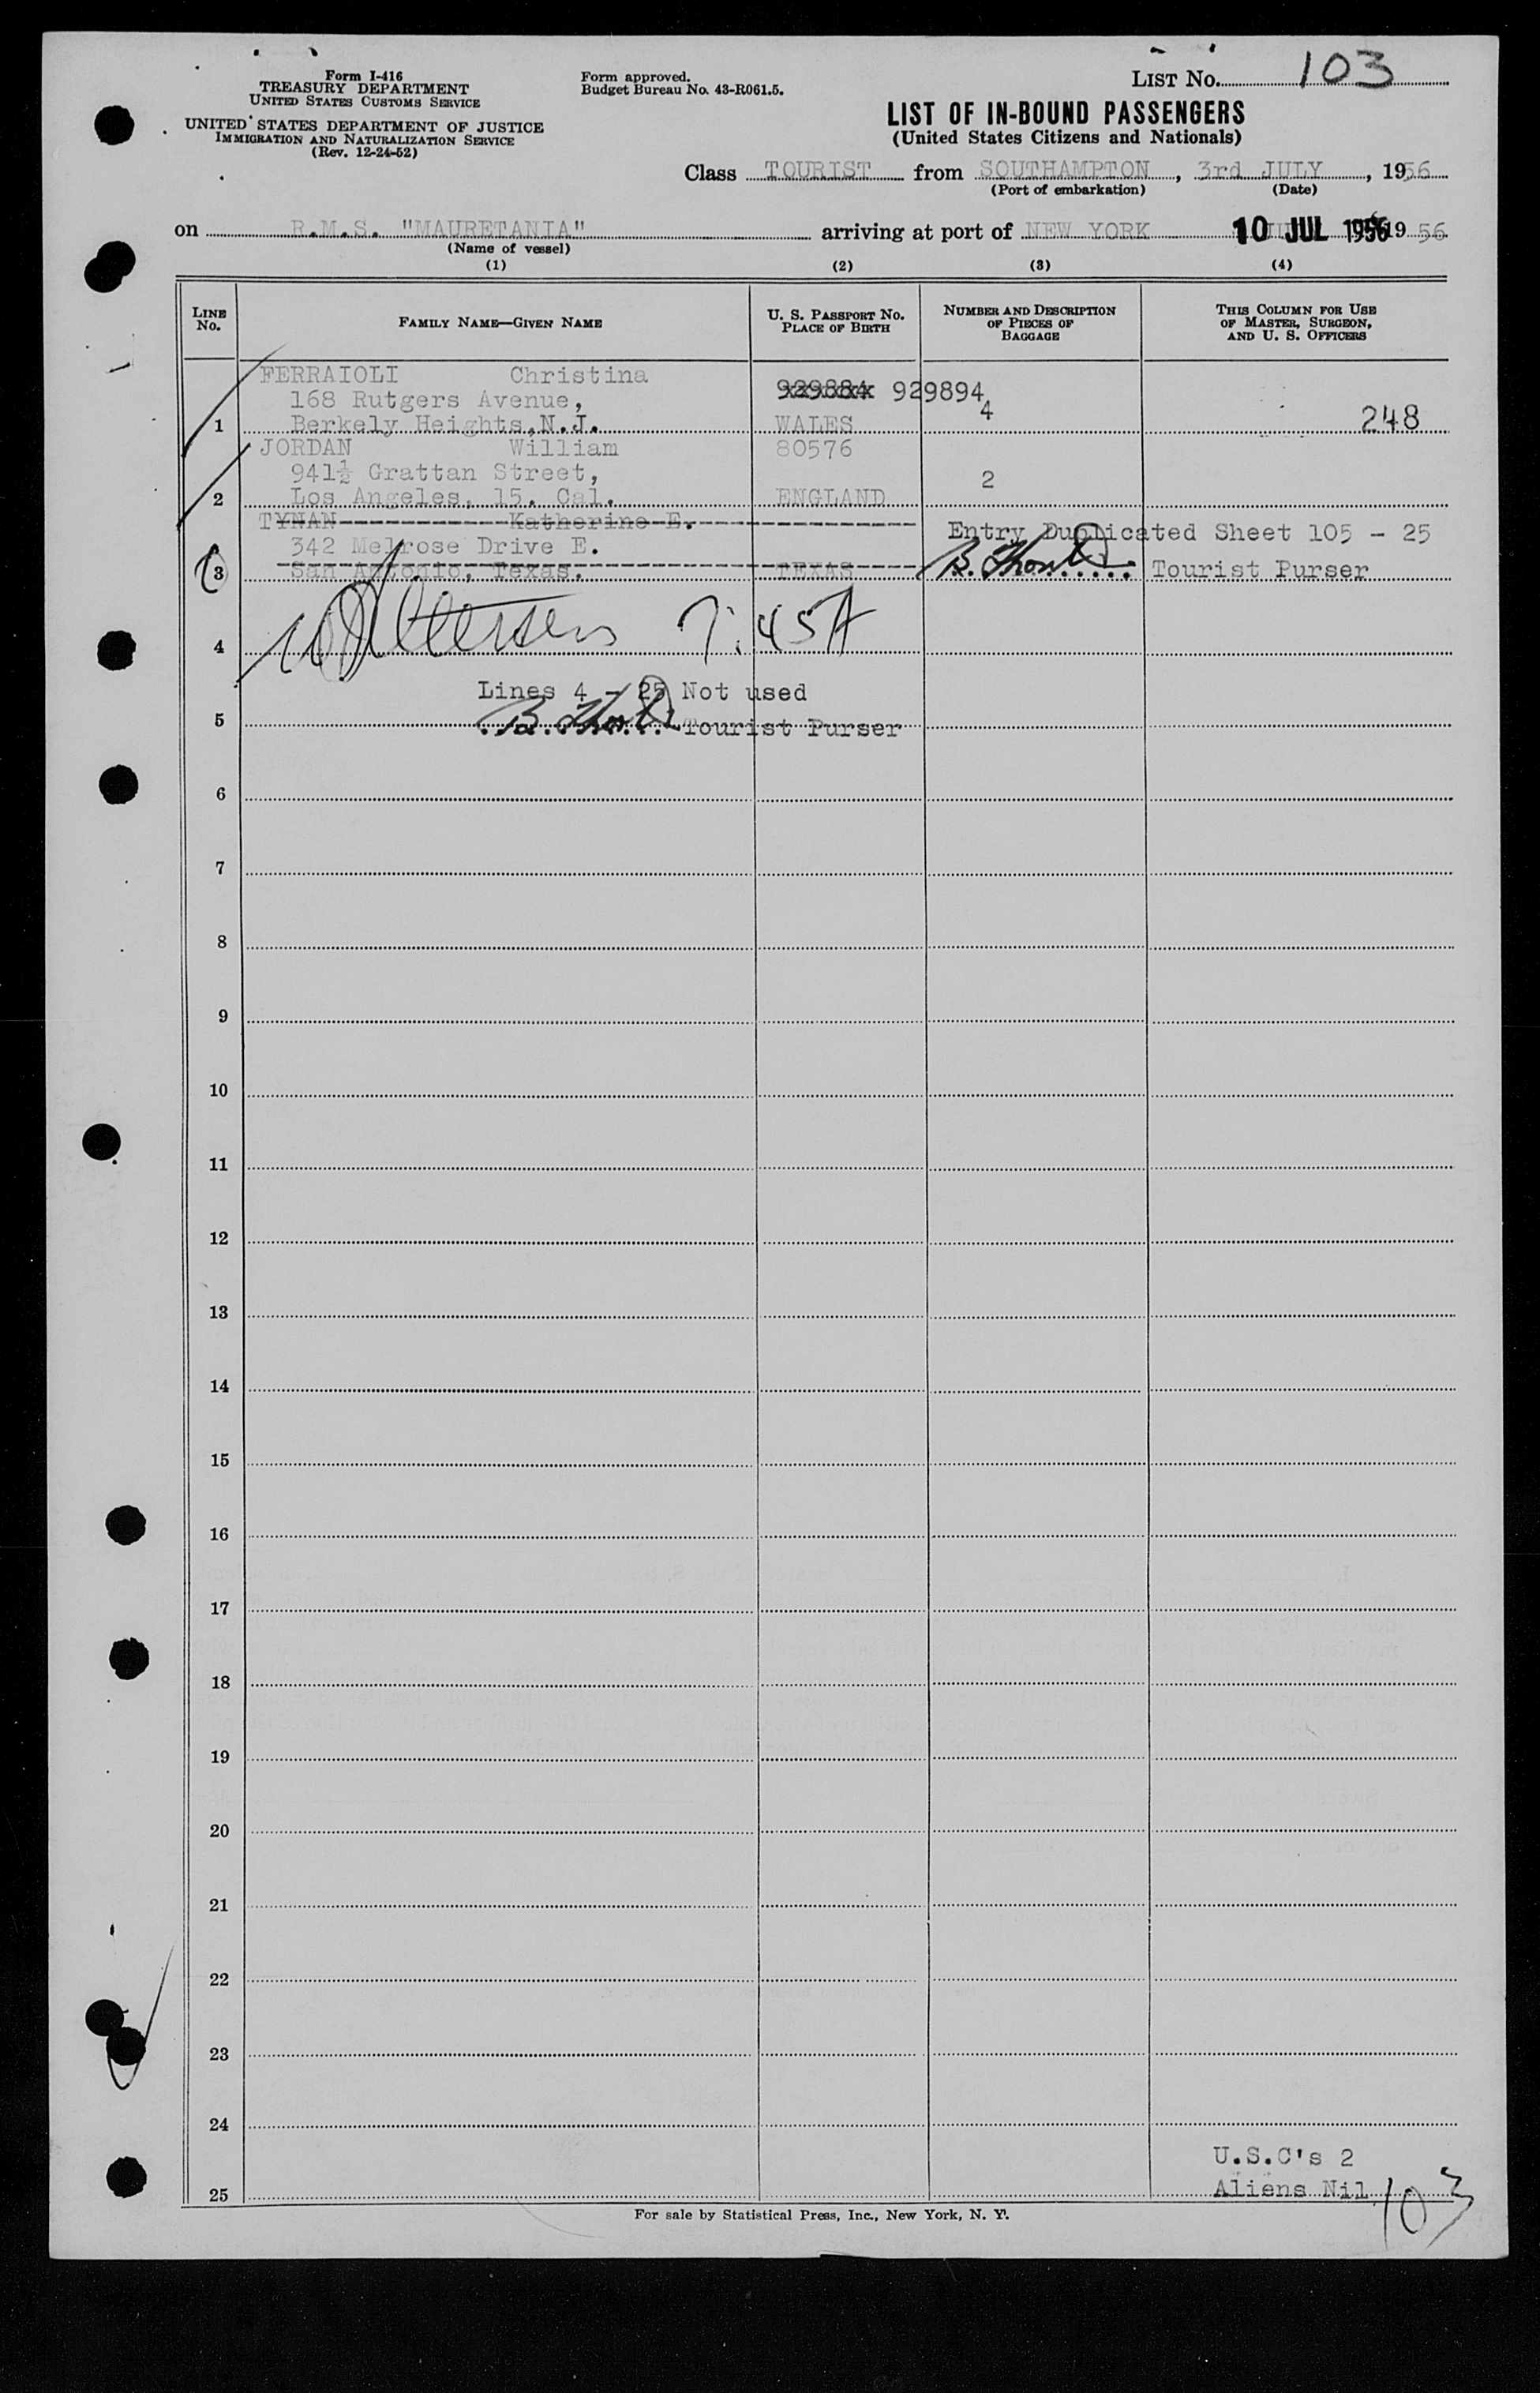 Form I-416
TREASURY DEPARTMENT
UNITED STATES CUSTOMS SERVICE
UNITED STATES DEPARTMENT OF JUSTICE
IMMIGRATION AND NATURALIZATION SERVICE
(Rev. 12-24-52)
Form approved.
Budget Bureau No. 43-R061.5.
LIST No. 103
LIST OF IN-BOUND PASSENGERS
(United States Citizens and Nationals)
Class TOURIST from SOUTHAMPTON, 3rd JULY, 1956
(Port of embarkation) (Date)
on R.M.S. "MAURETANIA" arriving at port of NEW YORK 10 JUL 1956 1956
(Name of vessel)
(1) (2) (3) (4)
LINE No. FAMILY NAME—GIVEN NAME U. S. PASSPORT No. PLACE OF BIRTH NUMBER AND DESCRIPTION OF PIECES OF BAGGAGE THIS COLUMN FOR USE OF MASTER, SURGEON, AND U. S. OFFICERS
FERRAIOLI Christina 929884 929894
168 Rutgers Avenue,
1 Berkely Heights,N.J. WALES 4 248
JORDAN William 80576
941½ Grattan Street, 2
2 Los Angeles, 15. Cal. ENGLAND
TYNAN Katherine E.
Entry Duplicated Sheet 105 - 25
342 Melrose Drive E.
3 San Antonio, Texas. TEXAS Tourist Purser
4 7:45A
Lines 4 - 25 Not used
5 Tourist Purser
6
7
8
9
10
11
12
13
14
15
16
17
18
19
20
21
22
23
24
U.S.C's 2
25 Aliens Nil 103
For sale by Statistical Press, Inc., New York, N. Y.